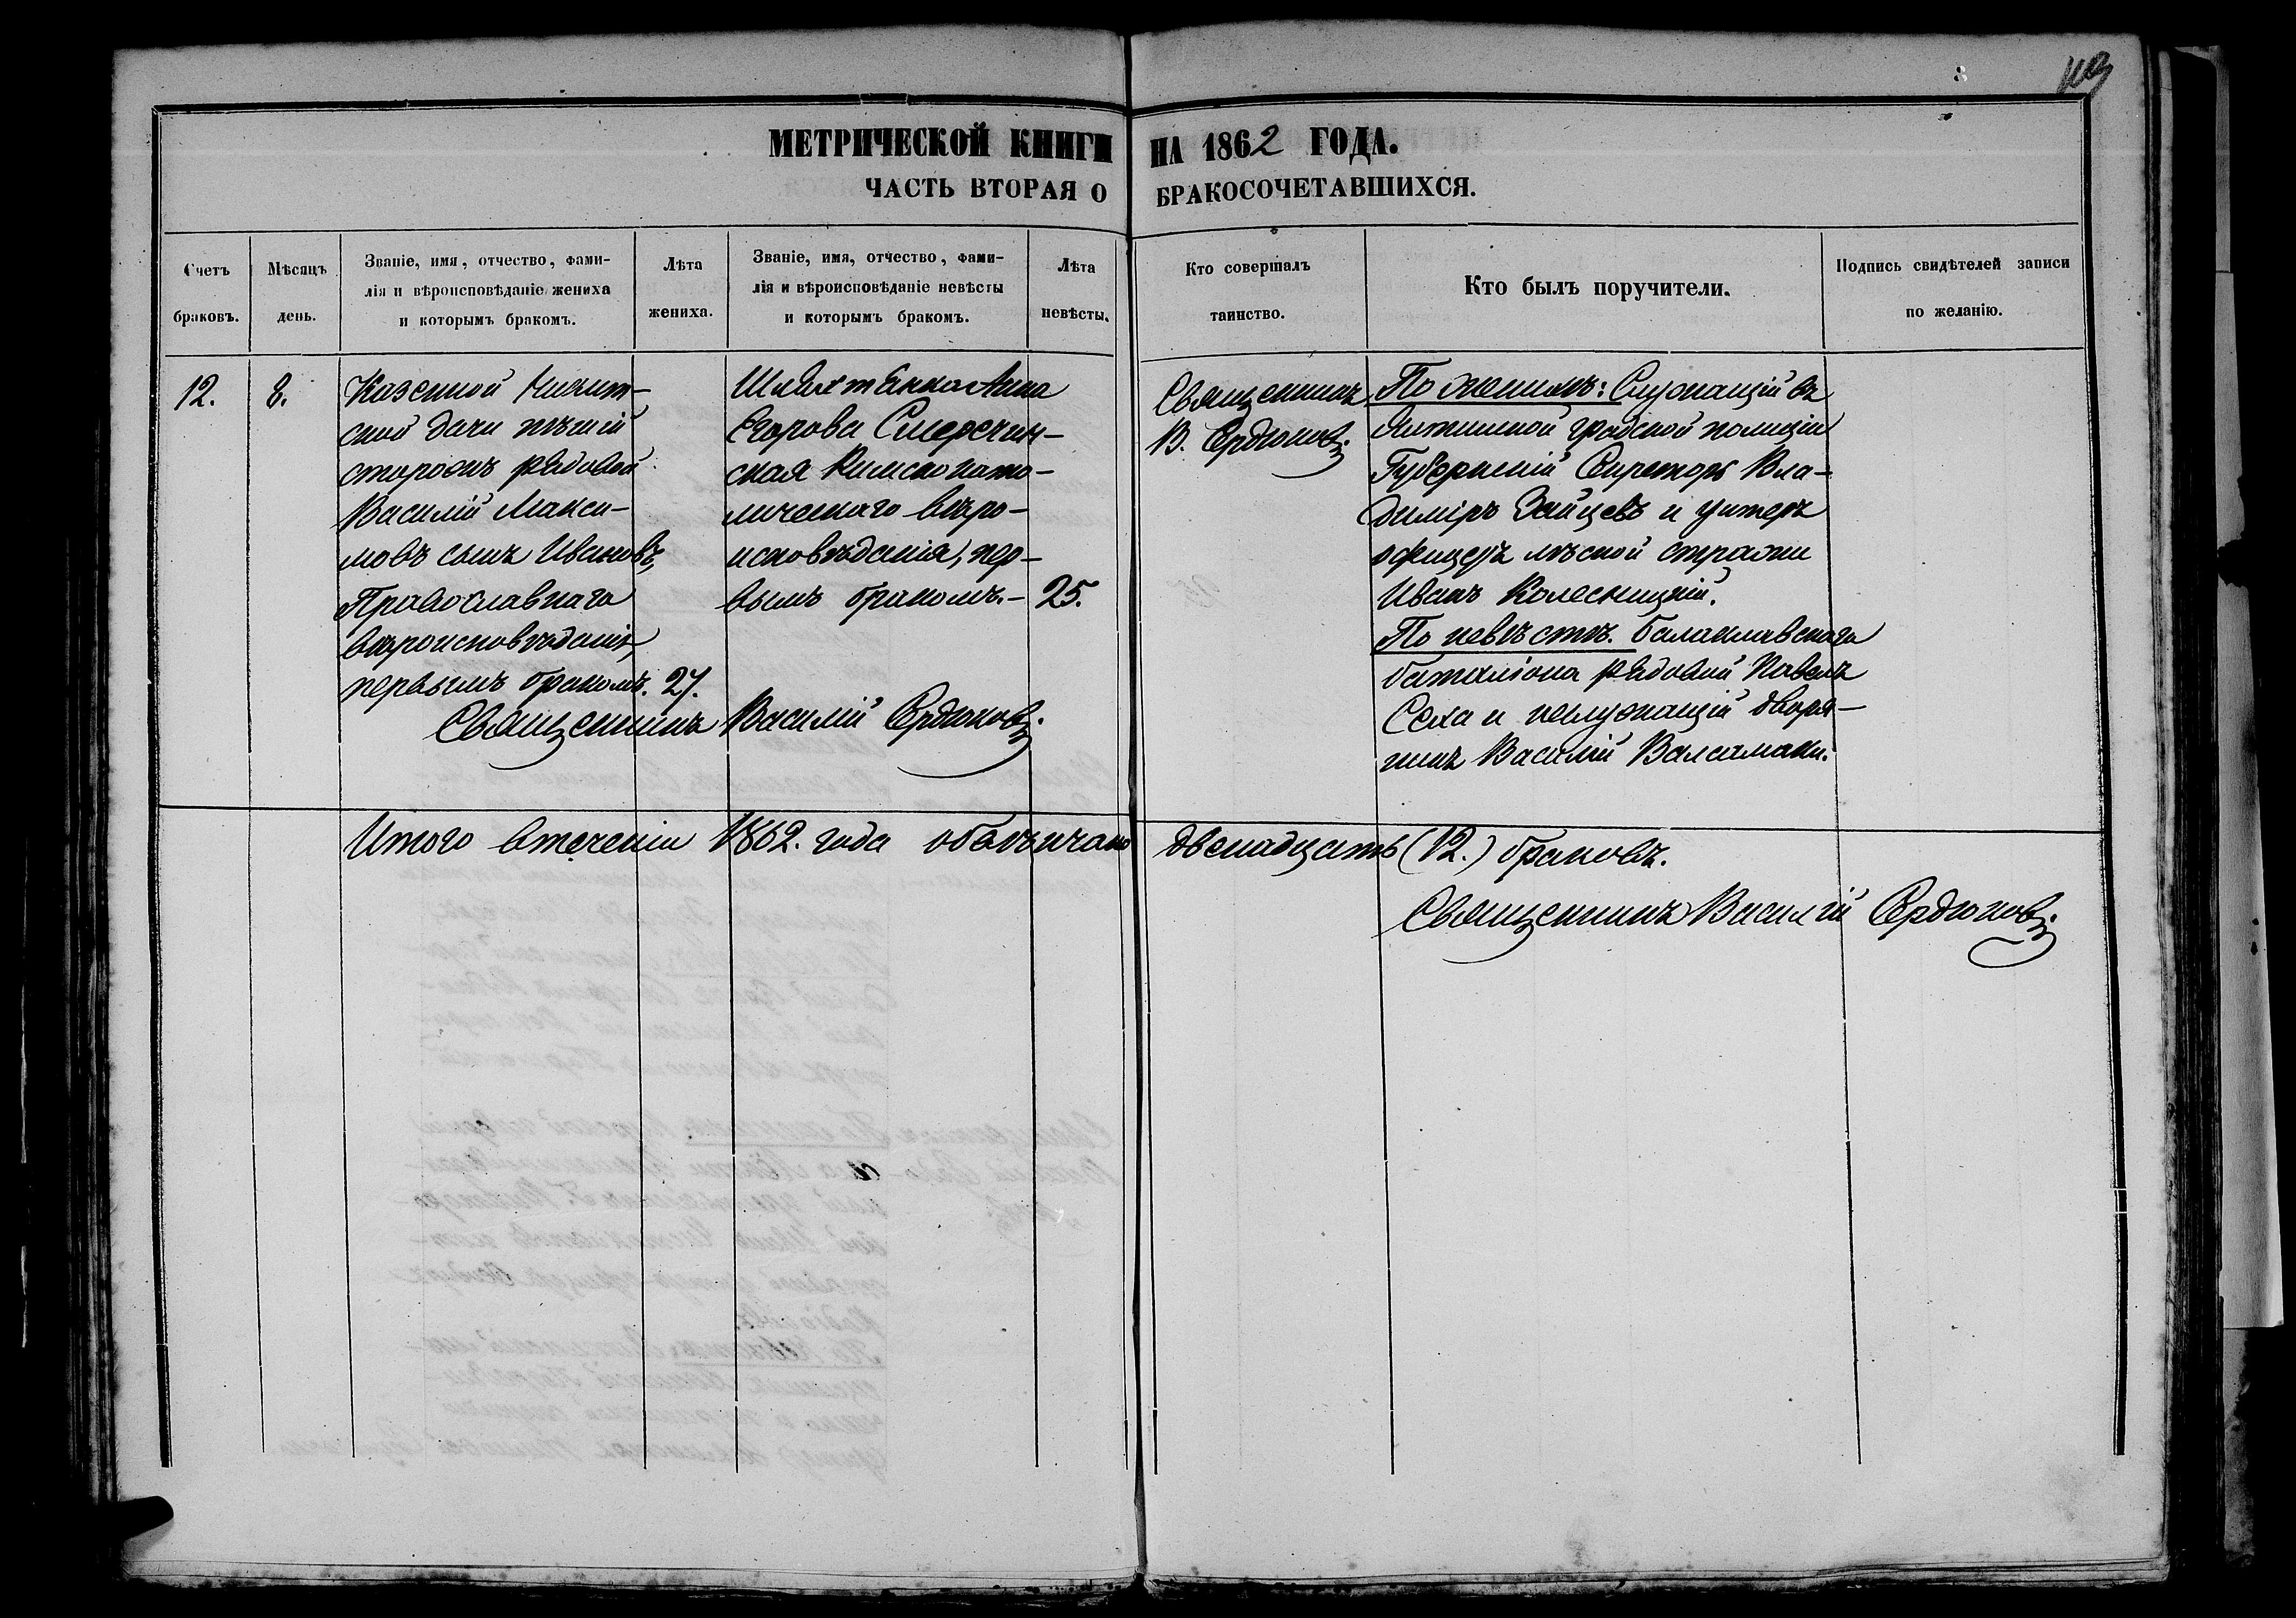 МЕТРИЧЕСКОЙ КНИГИ НА 1862 ГОДА.
ЧАСТЬ ВТОРАЯ О БРАКОСОЧЕТАВШИХСЯ.
Счетъ браковъ.
Мѣсяцъ день.
Званіе, имя, отчество, фами-
лія и вѣроисповѣданіе жениха
и которымъ бракомъ.
Лѣта жениха.
Званіе, имя, отчество, фами-
лія и вѣроисповѣданіе невѣсты
и которымъ бракомъ.
Лѣта невѣсты.
Кто совершалъ таинство.
Кто былъ поручители.
Подпись свидѣтелей записи
по желанію.
12.
8.
Казенной Никит-
ской дачи пѣшій
сторожъ рядовой
Василій Макси-
мовъ сынъ Ивановъ,
Православнаго
вѣроисповѣданія,
первымъ бракомъ. 27.
Шляхтянка Анна
Егорова Смеречин-
ская Римскокато-
лическаго вѣро-
исповѣданія, пер-
вымъ бракомъ.- 25.
Священникъ Василій Сердюковъ.
Священникъ
В. Сердюковъ.
По женихѣ: Служащій въ
Ялтинской градской полиціи
Губернскій Секретарь Вла-
диміръ Зайцевъ и унтеръ
офицеръ лѣсной стражи
Иванъ Колесницкій.
По невѣстѣ. Балаклавскаго
баталіона рядовой Павелъ
Сеха и неслужащій дворя-
нинъ Василій Валсамаки.
Итого втеченіи 1862. года обвѣнчано двенадцать (12.) браковъ.
Священникъ Василій Сердюковъ.